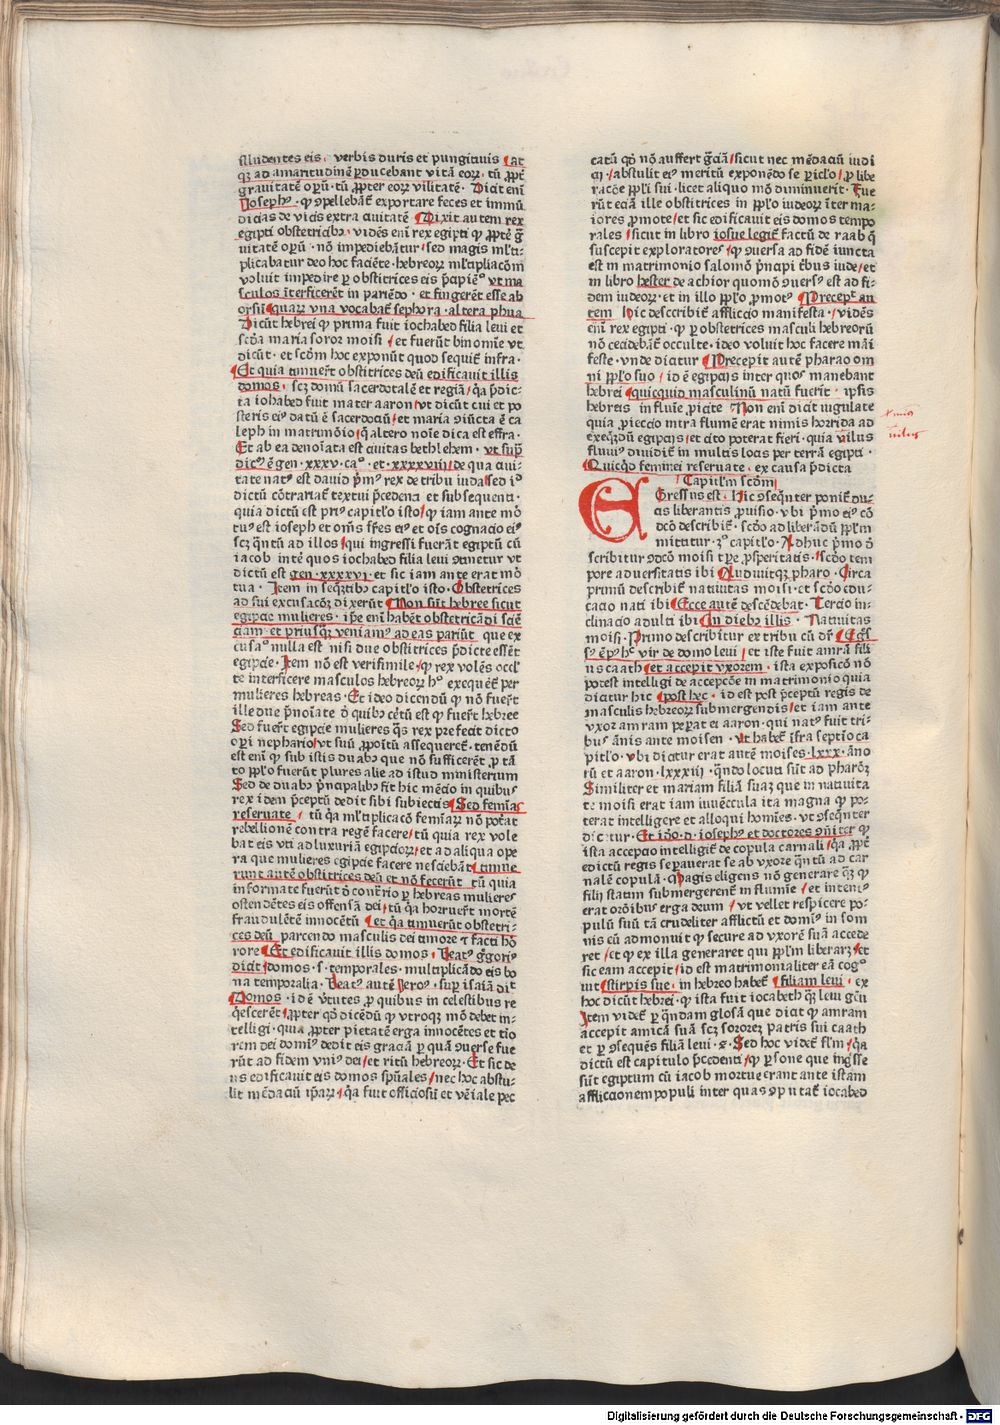 illudentes eis. verbis duris et pungitiuis at
qꝫ ad amaritudinē ꝑducebant vitā eoꝝ. tū ꝓpt̄
grauitatē oꝑū. tū ꝓpter eoꝝ vilitatē. Dicit eni
Josephꝰ. ꝙ ꝯpellebant̄ exportare feces et immū
dicias de vicis extra ciuitatē Dixit autem rex
egipti obstetricibꝰ. vidēs eni rex egipti ꝙ ꝓptē g̃
uitatē oꝑū. nō impediebātur sed magis ml̓ti⸗
plicabatur deo hoc faciēte. hebreoꝝ ml̓tiplicacōm
voluit impedire ꝑ obstitrices eis p̄cipiēs vt ma
sculos īterficerēt in pariēdo. et fingerēt esse ab
orsū quaꝝ vna vocabat̄ sephora. altera phua
Dicūt hebrei ꝙ prima fuit iochabed filia leui et
scōa maria soror moisi et fuerūt binomie vt
dicūt. et scōm hoc exponūt quod sequit̄ infra.
Et quia timuerūt obstitrices deū edificauit illis
domos. scꝫ domū sacerdotalē et regiā q̄a p̄dic⸗
ta iohabed fuit mater aaron vt dicūt cui et po
steris eiꝰ datū ē sacerdociū et maria ꝯiūcta ē ca
leph in matrimōio q̄ altero noīe dicta est effra.
Et ab ea denoīata est ciuitas bethlehem. vt supͣ
dictꝰ ē gen. xxxv. caͦ. et. xxxxviii de qua ciui⸗
tate natꝰ est dauid p̄mꝰ rex de tribu iuda sed id
dictū cōtrariat̄ textui p̄cedenti et subsequenti.
quia dictū est priꝰ capitl̓o isto ꝙ iam ante mō
tuꝰ est ioseph et om̄s fr̄es eiꝰ et oīs cognacio eiꝰ
scꝫ q̄ntū ad illos qui ingressi fuerāt egiptū cū
iacob inter quos iochabed filia leui ꝯtinetur vt
dictū est gen. xxxxvi. et sic iam ante erat mō
tua. Item in seq̄ntibꝰ capitl̓o isto. Obstetrices
ad sui excusacōꝫ dixerūt Non sūt hebree sicut
egipcie mulieres. ip̄e eni habēt obstetricādi sciē
ciam et priusq̄ veniamꝰ ad eas pariūt que ex
cusaͦ nulla est nisi due obstitrices p̄dicte essēt
egipcie. Item nō est verisimile ꝙ rex volēs occl̓
te interficere masculos hebreoꝝ hͦ exequēt̄ per
mulieres hebreas. Et ideo dicendū ꝙ nō fuerūt
ille due p̄noīate d̓ quibꝰ cētū est ꝙ fuerūt hebree
Sed fuerūt egipcie mulieres q̄s rex prefecit dicto
oꝑi nephario vt suū ꝓpōitū assequeret̄. tenēdū
est eni ꝙ sub istis duabꝰ que nō sufficerēt ꝓ tā
to ppl̓o fuerūt plures alie ad istud ministerium
Sed de duabꝰ p̄ncipalibꝰ fit hic mēcio in quibꝰ
rex idem p̄ceptū dedit sibi subiectis Sed feminas
reseruate. tū q̄a ml̓tiplicacō feminaꝝ nō poterat
rebellionē contra regē facere tū quia rex vole
bat eis vti ad luxuriā egipcioꝝ et ad aliqua ope
ra que mulieres egipcie facere nesciebāt timue
runt autē obstitrices deū et nō fecerūt tū quia
informate fuerūt d̓ cont̓rio ꝑ hebreas mulieres
ostendētes eis offensā dei tū q̄a horruerūt mortē
fraudulētē innocētū et q̄a timuerūt obstetri⸗
ces deū parcendo masculis dei timore ⁊ facti hō
rore Et edificauit illis domos. Beatꝰ g̓goriꝰ
dicit domos. s. temporales. multiplicādo eis bo
na temporalia. Beatꝰ autē Jeroꝰ. suꝑ isaīā dit
Domos. id ē v̓tutes ꝓ quibus in celestibus re
q̄escerēt ꝓpter qd̓ dicēdū ꝙ vtroqꝫ mō debet in⸗
telligi. quia ꝓpter pietatē erga innocētes et tīo
rem dei domiꝰ dedit eis graciā ꝑ quā ꝯuerse fue
rūt ad fidem vniꝰ dei et ritū hebreoꝝ. Et sic de
us edificauit eis domos spūales nec hoc abstu⸗
lit mēdaciū ip̄aꝝ q̄a fuit officiosū et veīale pec
catū qd̓ nō auffert g̃ciā sicut nec mēdaciū iudi
ci. abstulit eiꝰ meritū exponēdo se ꝑicl̓o ꝓ libe
racōe ppl̓i sui. licet aliquo mō diminuerit. Fue
rūt eciā ille obstitrices in ppl̓o iudeoꝝ īter ma⸗
iores ꝓmote et sic edificauit eis domos tempo
rales sicut in libro iosue legit̄ factū de raab q̄
suscepit exploratores ꝙ ꝯuersa ad fidē iuncta
est in matrimonio salomō p̄ncipi t̓bus iude et
in libro hester de achior quomō ꝯuersꝰ est ad fi⸗
dem iudeoꝝ. et in illo ppl̓o ꝓmotꝰ Precepit au
tem Hic describit̄ affliccio manifesta. vidēs
eni rex egipti. ꝙ ꝑ obstetrices masculi hebreorū
nō cecidebāt̄ occulte. ideo voluit hoc facere māi
feste. vnde dicitur Precepit autē pharao om
ni ppl̓o suo id ē egipciis inter quos manebant
hebrei quicquid masculinū natū fuerit. ipsis
hebreis in fluuiē ꝓicite Non eni dicit iugulate
quia ꝓieccio intra flumē erat nimis horrida ad
exeq̄ndū egipciis et cito poterat fieri. quia nilus
fluuiꝰ diuidit̄ in multis locis per terrā egipti.
Quicq̄d feminei reseruate. ex causa p̄dicta
Capitl̓m scōm
EGressus est. Hic ꝯseq̄nter ponit̄ du⸗
cis liberantis ꝓuisio. vbi p̄mo eiꝰ cō
dicō describit̄. scōo ad liberādū ppl̓m
mittitur. 3ͦ capitl̓o. Adhuc p̄mo d̓
scribitur ꝯdicō moisi tꝑe ꝓsperitatis. scōo tem
pore aduersitatis ibi Audiuitqꝫ pharo. Circa
primū describit̄ natiuitas moisi. et scōo edu⸗
cacio nati ibi Ecce autē descēdebat. Tercio in⸗
clinacio adulti ibi In diebꝰ illis. Natiuitas
moisi. Primo describitur ex tribu cū dr̄ Egres
sꝰ ē pꝰ hͦ vir de domo leui et iste fuit amrā fili
us caath et accepit vxorem. ista exposicō nō
potest intelligi de accepcōe in matrimonio quia
dicitur hic post hec. id est post p̄ceptū regis de
masculis hebreoꝝ submergendis et iam ante
vxor amram peꝑat ei aaron. qui natꝰ fuit tri⸗
bꝰ ānis ante moisen. vt habet̄ īfra septīo ca
pitl̓o. vbi dicitur erat autē moises. lxxx. āno
rū et aaron. lxxxiii. q̄ndo locuti sūt ad pharōꝫ
Similiter et mariam filiā suaꝫ que in natiuita
te moisi erat iam iuuēcula ita magna ꝙ po⸗
terat intelligere et alloqui homīes. vt ꝯseq̄nter
dicitur. Et iō.d. iosephꝰ et doctores ꝯūiter ꝙ
ista accepcio intelligit̄ de copula carnali q̄a ꝓpt̄
edictū regis seꝑauerat se ab vxore q̄ntū ad car
nalē copulā. Magis eligens nō generare q̄ꝫ ꝙ
filij statim submergerent̄ in flumīe et intentꝰ
erat orōibus erga deum vt vellet respicere po⸗
pulū suū tā crudeliter afflictū et domiꝰ in som
nis eū admonuit ꝙ secure ad vxorē suā accede
ret et ꝙ ex illa generaret qui ppl̓m liberarꝫ et
sic eam accepit id est matrimonialiter eā cogͦ
uit stirpis sue. in hebreo habet̄ filiam leui. ex
hoc dicūt hebrei. ꝙ ista fuit iocabeth q̄ꝫ leui gēt̄
Item videt̄ ꝑ q̄ndam glosā que dicit ꝙ amram
accepit amicā suā scꝫ sororeꝫ patris sui caath
et ꝑ ꝯsequēs filiā leui. ꝛ. Sed hoc videt̄ fl̓m q̄a
dictū est capitulo p̄cedenti ꝙ ꝑsone que īgr̄sse
sūt egiptum cū iacob mortue erant ante istam
affliccionem populi inter quas ꝯputat̄ iocabed
nilus
Digitalisierung gefördert durch die Deutsche Forschungsgemeinschaft - DFG